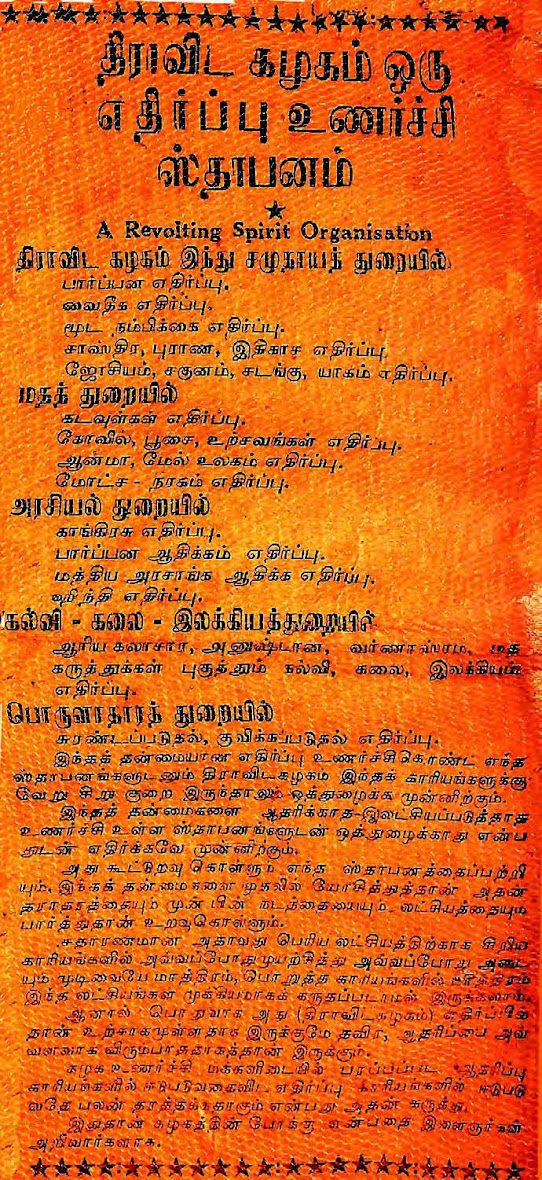 திராவிட கழகம் ஒரு
எதிர்ப்பு உணர்ச்சி
ஸ்தாபனம்
A Revolting Spirit Organisation
திராவிட கழகம் இந்து சமுதாயத் துறையில்
பார்ப்பன எதிர்ப்பு.
வைதீக எதிர்ப்பு.
மூட நம்பிக்கை எதிர்ப்பு.
சாஸ்திர, புராண, இதிகாச எதிர்ப்பு.
ஜோசியம், சகுனம், சடங்கு, யாகம் எதிர்ப்பு.
மதத் துறையில்
கடவுள்கள் எதிர்ப்பு.
கோவில், பூசை, உற்சவங்கள் எதிர்ப்பு.
ஆன்மா, மேல் உலகம் எதிர்ப்பு.
மோட்ச - நரகம் எதிர்ப்பு.
அரசியல் துறையில்
காங்கிரசு எதிர்ப்பு.
பார்ப்பன ஆதிக்கம் எதிர்ப்பு.
மத்திய அரசாங்க ஆதிக்க எதிர்ப்பு.
ஹிந்தி எதிர்ப்பு.
கல்வி - கலை - இலக்கியத்துறையில்
ஆரிய கலாசார, அனுஷ்டான, வர்ணாஸ்ரம, மத
கருத்துக்கள் புகுத்தும் கல்வி, கலை, இலக்கியம்
எதிர்ப்பு.
பொருளாதாரத் துறையில்
சுரண்டப்படுதல், குவிக்கப்படுதல் எதிர்ப்பு.
இந்தத் தன்மையான எதிர்ப்பு உணர்ச்சிகொண்ட எந்த
ஸ்தாபனங்களுடனும் திராவிடகழகம் இந்தக் காரியங்களுக்கு
வேறு சிறு குறை இருந்தாலும் ஒத்துழைக்க முன்னிற்கும்.
இந்தத் தன்மைகளை ஆதரிக்காத-இலட்சியப்படுத்தாத
உணர்ச்சி உள்ள ஸ்தாபனங்களுடன் ஒத்துழைக்காது என்ப
துடன் எதிர்க்கவே முன்னிற்கும்.
அது கூட்டுறவு கொள்ளும் எந்த ஸ்தாபனத்தைப்பற்றி
யும், இந்தத் தன்மைகளை முதலில் யோசித்துத்தான் அதன்
தராதரத்தையும் முன் பின் நடத்தையையும் லட்சியத்தையும்
பார்த்துதான் உறவுகொள்ளும்.
சதாரணமான அதாவது பெரிய லட்சியத்திற்காக சிறிய
காரியங்களில் அவ்வப்போது முயற்சித்து அவ்வப்போது அடை
யும் முடிவையே மாத்திரம், பொறுத்த காரியங்களில் மாத்திரம்
இந்த லட்சியங்கள் முக்கியமாகக் கருதப்படாமல் இருக்கலாம்.
ஆனால் பொதுவாக அது (திராவிடகழகம்) எதிர்ப்பில்
தான் உற்சாகமுள்ளதாக இருக்குமே தவிர, ஆதரிப்பை அவ்
வளவாக விரும்பாததாகத்தான் இருக்கும்.
கழக உணர்ச்சி மக்களிடையில் பரப்பப்பட ஆதரிப்பு
காரியங்களில் ஈடுபடுவதைவிட எதிர்ப்பு காரியங்களில் ஈடுபடு
வதே பலன் தரத்தக்கதாகும் என்பது அதன் கருத்து.
இதுதான் கழகத்தின் போக்கு என்பதை இளைஞர்கள்
அறிவார்களாக.